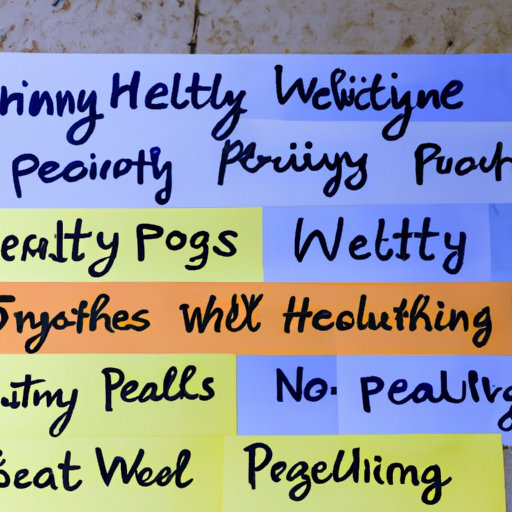 rinny Heltly Weliictyne
Peoirotly Periiyy Puoch
ealty Pogs Weltty
Sryothes whX Heoluthing
atny Pealls No. pealivg
Seat Weel Pegellimg